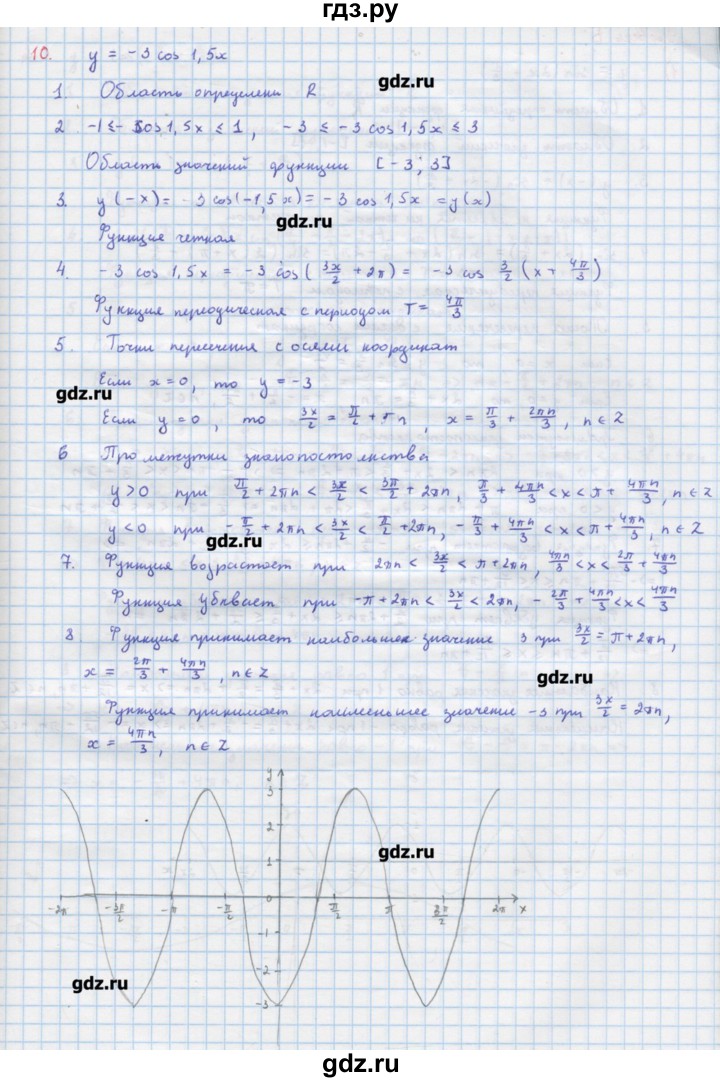 гдз.ру
10. y = -3 cos 1,5x
1. Область определени R
gdz.ru
2 -1 ≤ - cos 1,5x ≤ 1, -3 ≤ -3 cos 1,5x ≤ 3
Область значений функции [-3; 3]
3. y(-x) = -3 cos(-1,5x) = -3 cos 1,5x = y(x)
gdz.ru
Функция четная
4. -3 cos 1,5x = -3 cos(3x/2 + 2π) = -3 cos 3/2 (x + 4π/3)
Функция переодическая с периодом T = 4π/3
5. Точки пересечения с осями координат
Если x=0, то y = -3
gdz.ru
Если y=0, то 3x/2 = π/2 + πn, x = π/3 + 2πn/3, n∈Z
6 Промежутки знакопостоянства
y>0 при π/2 + 2πn < 3x/2 < 3π/2 + 2πn, π/3 + 4πn/3 < x < π + 4πn/3, n∈Z
y<0 при -π/2 + 2πn < 3x/2 < π/2 + 2πn, -π/3 + 4πn/3 < x < π + 4πn/3, n∈Z
gdz.ru
7. Функция возрастает при 2πn < 3x/2 < π + 2πn, 4πn/3 < x < 2π/3 + 4πn/3
Функция убквает при -π + 2πn < 3x/2 < 2πn, -2π/3 + 4πn/3 < x < 4πn/3
8 Функция принимает наибольшее значение 3 при 3x/2 = π + 2πn,
x = 2π/3 + 4πn/3, n∈Z
gdz.ru
Функция принимает наименьшее значение -3 при 3x/2 = 2πn,
x = 4πn/3, n∈Z
y
3
2
gdz.ru
1
0
-2π -3π/2 -π -π/2 π/2 π 3π/2 2π x
-1
-2
gdz.ru
-3
gdz.ru